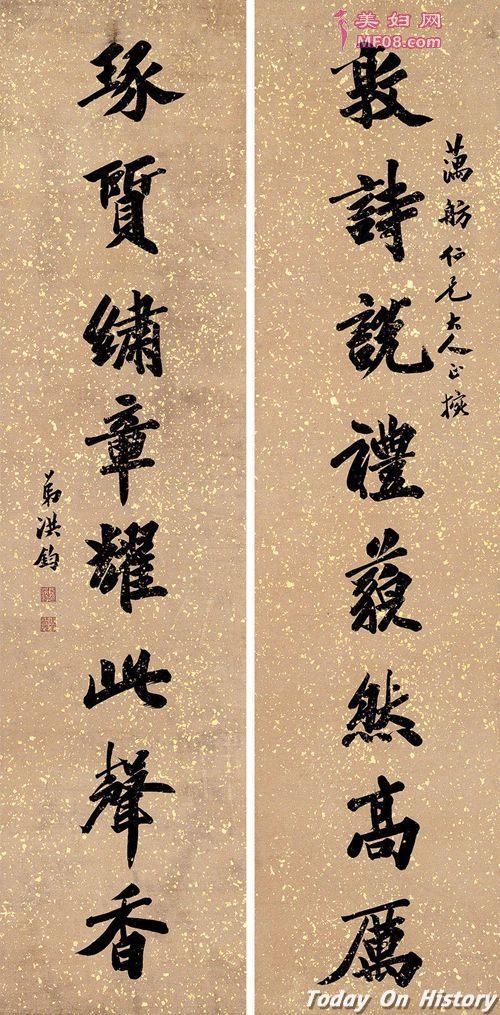 美妇网
MF08.com
蕅舫仁兄大人正
敦詩說禮藐然高厲
琢質繡章耀此聲香
弟洪鈞
Today On History